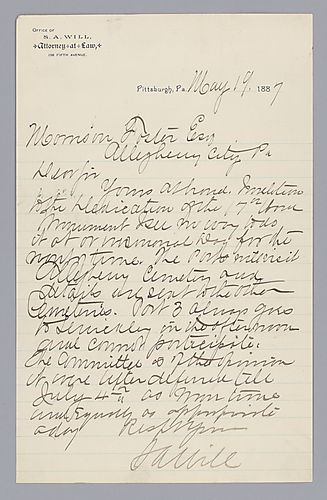 Office of
S. A. WILL,
Attorney at Law,
FIFTH AVENUE.
Pittsburgh, Pa. May 19, 1887
Morrison Foster Esq
Allegheny City Pa
Dear Sir
Yours at hand.
to the Dedication of the 17th
Monument see no way to
at or memorial day for the
time. The Posts will visit
Allegheny Cemetery and
details are sent to the other
Cemeteries. Post 3 always goes
to Sewickley in the afternoon
and cannot participate.
The Committee is of the opinion
deferred till
July 4th as time
and Equally as appropriate
a day Resp
S A Will